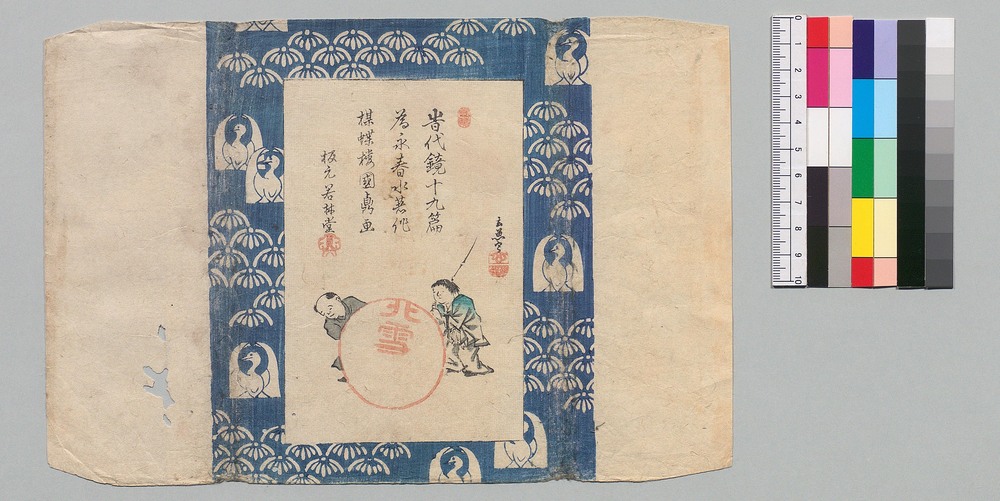 時代鏡十九篇
為永春水著作
楳蝶楼國鼎画
板元若林堂
北雪
0
1
2
3
4
5
6
7
8
9
10